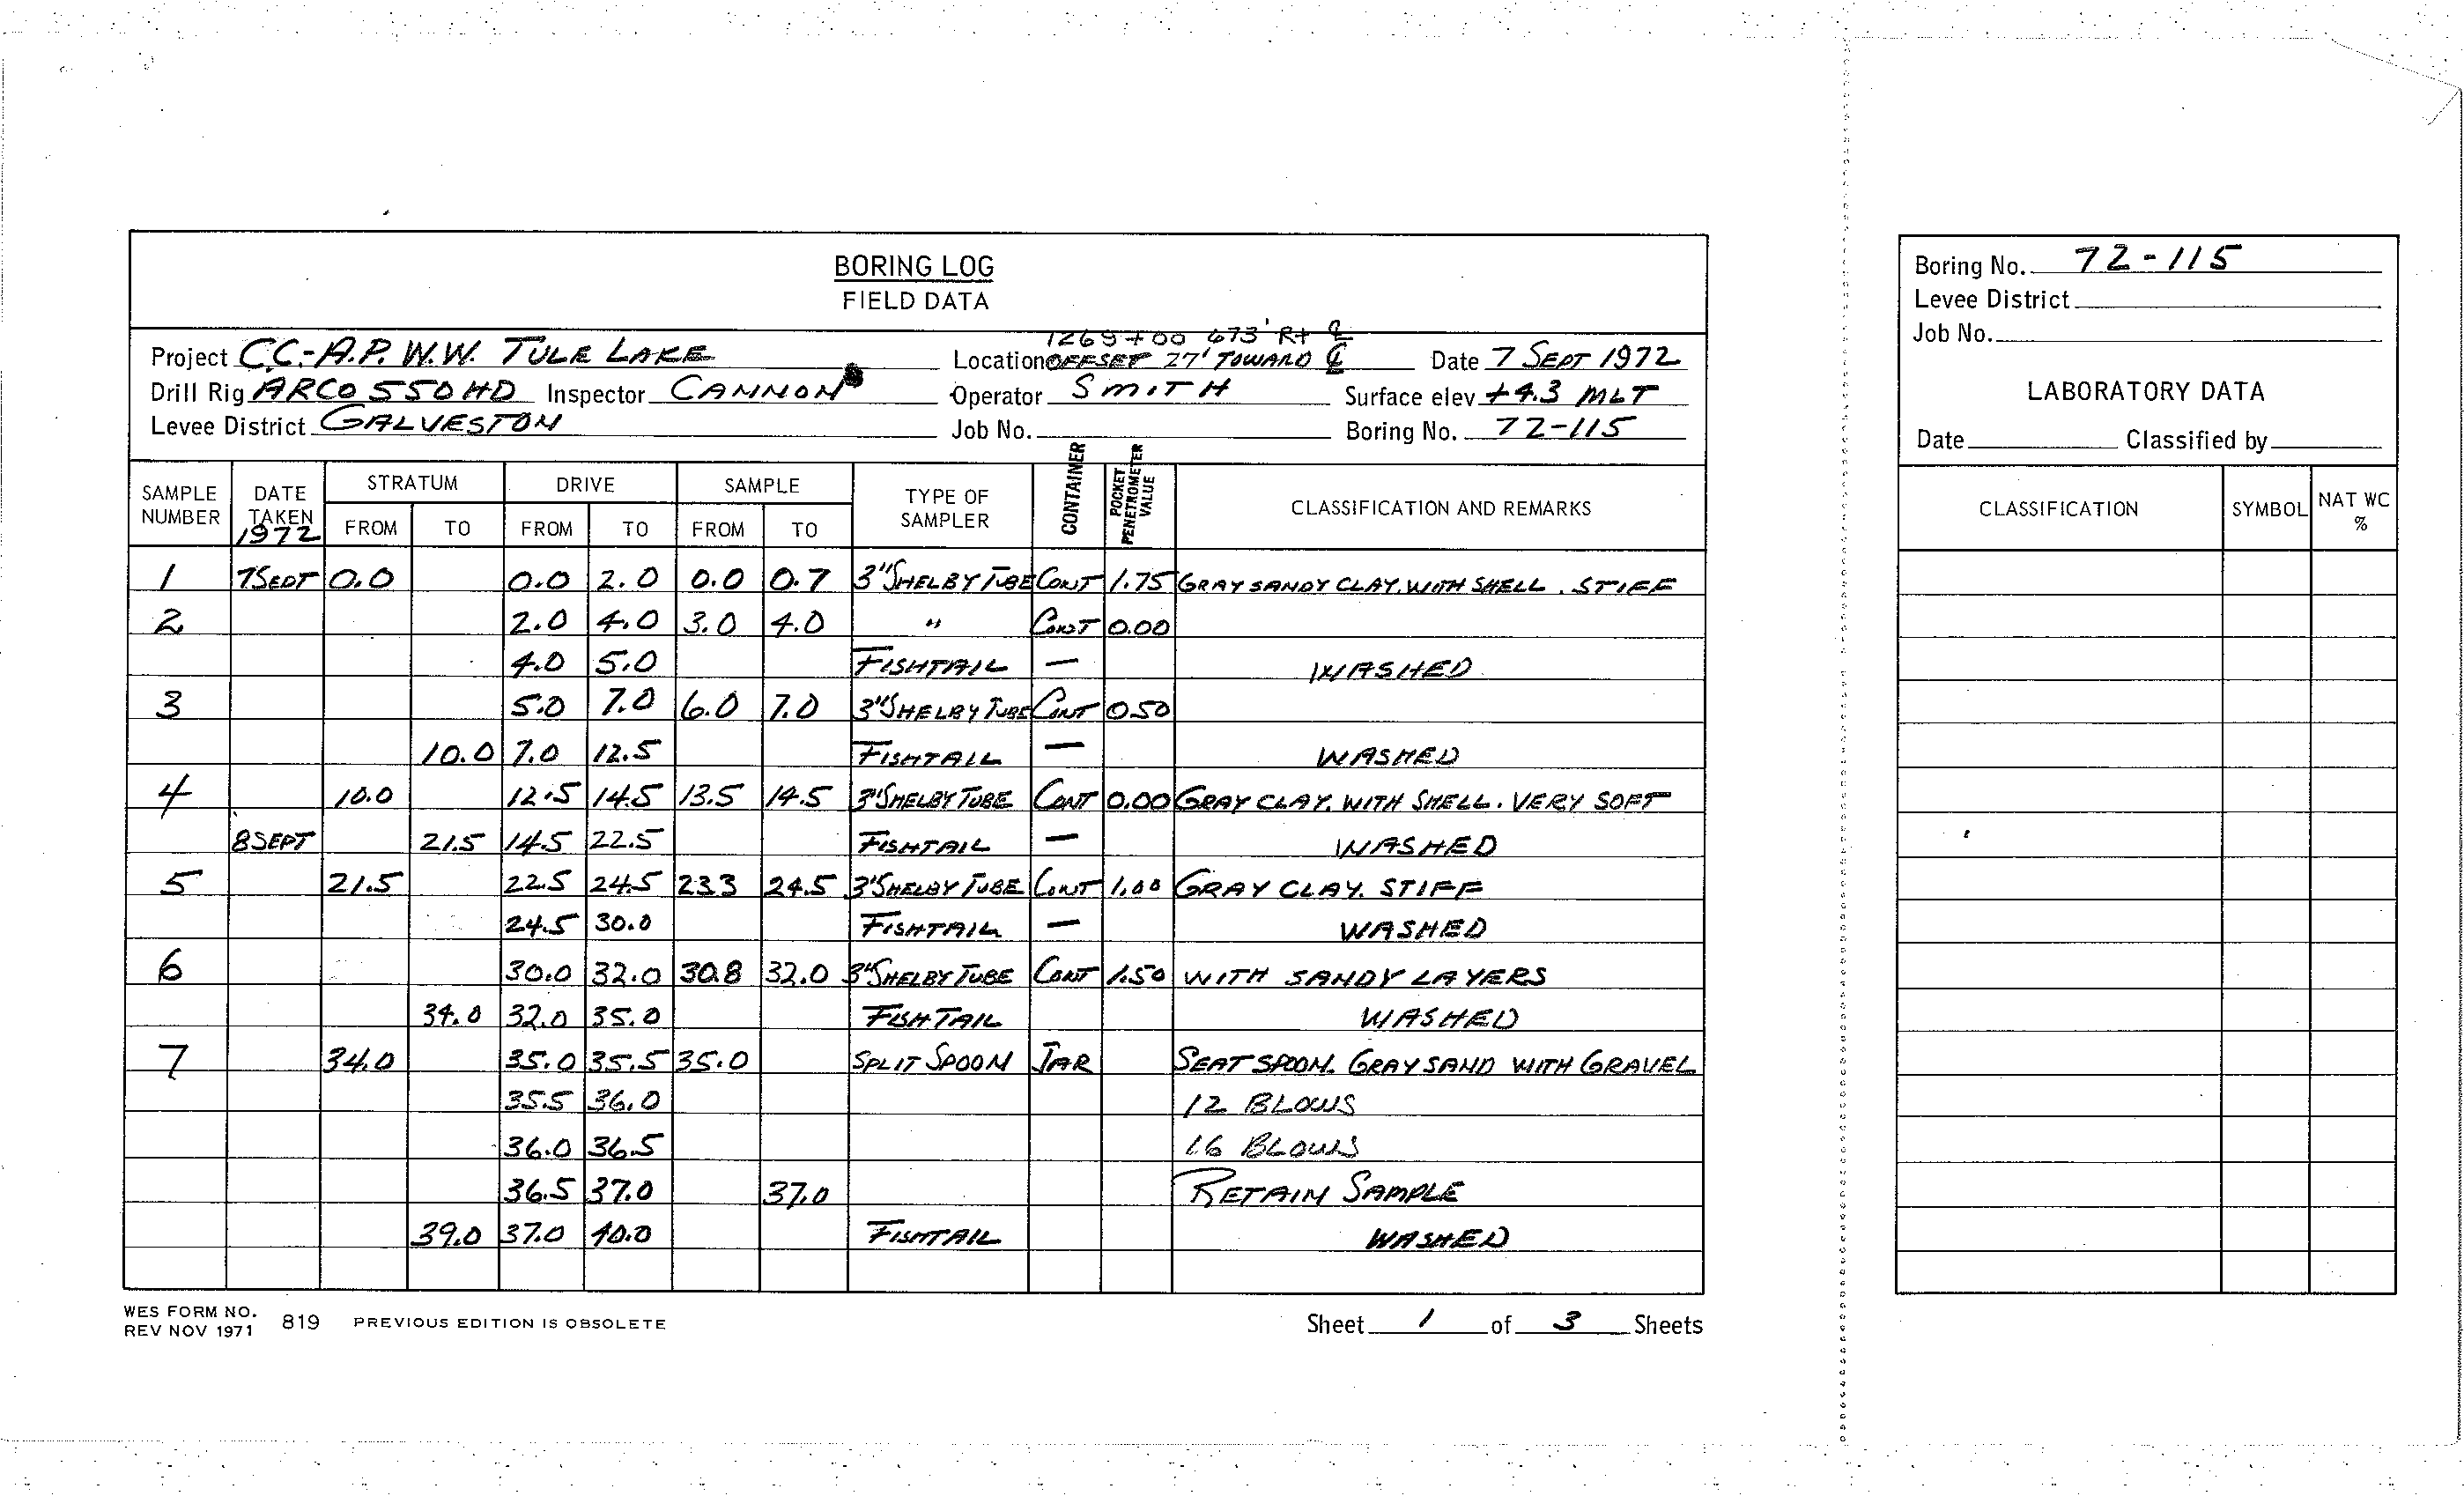 BORING LOG
FIELD DATA
1269+00 673' Rt ℄
Project C.C.-A.P. W.W. TULE LAKE Location OFFSET 27' TOWARD ℄ Date 7 SEPT 1972
Drill Rig ARCO 550 HD Inspector CANNON Operator SMITH Surface elev +4.3 MLT
Levee District GALVESTON Job No. Boring No. 72-115
SAMPLE NUMBER DATE TAKEN 1972 STRATUM FROM TO DRIVE FROM TO SAMPLE FROM TO TYPE OF SAMPLER CONTAINER POCKET PENETROMETER VALUE CLASSIFICATION AND REMARKS
1 7SEPT 0.0 0.0 2.0 0.0 0.7 3"SHELBY TUBE CONT 1.75 GRAY SANDY CLAY. WITH SHELL. STIFF
2 2.0 4.0 3.0 4.0 " CONT 0.00
4.0 5.0 FISHTAIL — WASHED
3 5.0 7.0 6.0 7.0 3"SHELBY TUBE CONT 0.50
10.0 7.0 12.5 FISHTAIL — WASHED
4 10.0 12.5 14.5 13.5 14.5 3"SHELBY TUBE CONT 0.00 GRAY CLAY. WITH SHELL. VERY SOFT
8SEPT 21.5 14.5 22.5 FISHTAIL — WASHED
5 21.5 22.5 24.5 23.3 24.5 3"SHELBY TUBE CONT 1.00 GRAY CLAY. STIFF
24.5 30.0 FISHTAIL — WASHED
6 30.0 32.0 30.8 32.0 3"SHELBY TUBE CONT 1.50 WITH SANDY LAYERS
34.0 32.0 35.0 FISHTAIL WASHED
7 34.0 35.0 35.5 35.0 SPLIT SPOON JAR SEAT SPOON. GRAY SAND WITH GRAVEL
35.5 36.0 12 BLOWS
36.0 36.5 16 BLOWS
36.5 37.0 37.0 RETAIN SAMPLE
39.0 37.0 40.0 FISHTAIL WASHED
WES FORM NO. 819 PREVIOUS EDITION IS OBSOLETE
REV NOV 1971
Sheet 1 of 3 Sheets
Boring No. 72-115
Levee District
Job No.
LABORATORY DATA
Date Classified by
CLASSIFICATION SYMBOL NAT WC %